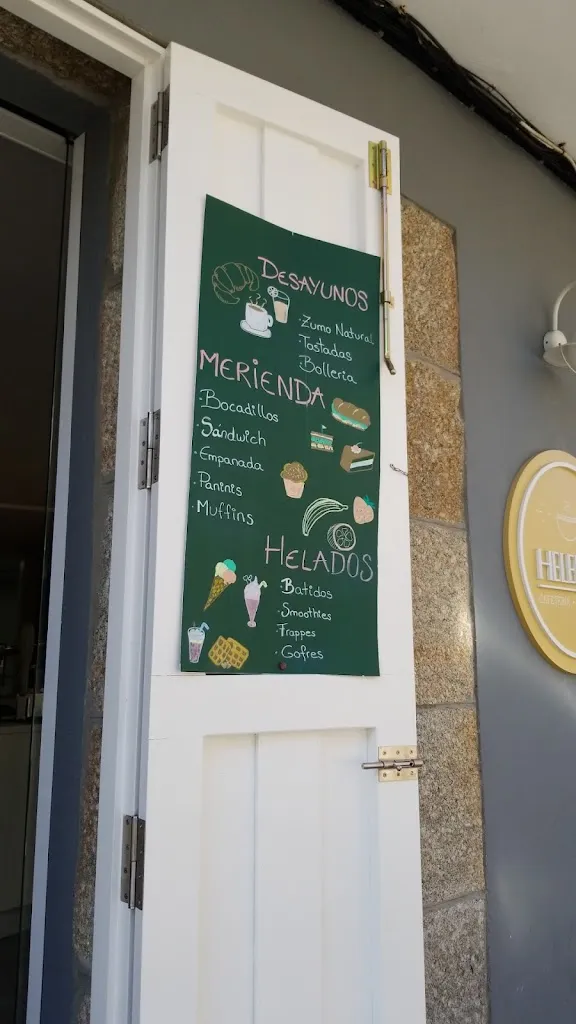 DESAYUNOS
· Zumo Natural
· Tostadas
· Bolleria
MERIENDA
· Bocadillos
· Sándwich
· Empanada
· Paninis
· Muffins
HELADOS
· Batidos
· Smoothies
· Frappes
· Gofres